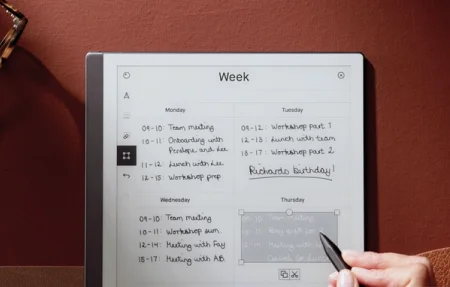 Week
Monday
09-10: Team meeting
10-11: Onboarding with
Penelope and Lee
11-12: Lunch with Lee
12-15: Workshop prep
Tuesday
09-12: Workshop part 1
12-13: Lunch with team
13-17: Workshop part 2
Richards birthday!
Wednesday
09-10: Team meeting
10-11: Workshop sum.
12-14: Meeting with Fay
15-17: Meeting with AB
Thursday
09-10: Team meeting
10-11: with
12-14: Meeting with